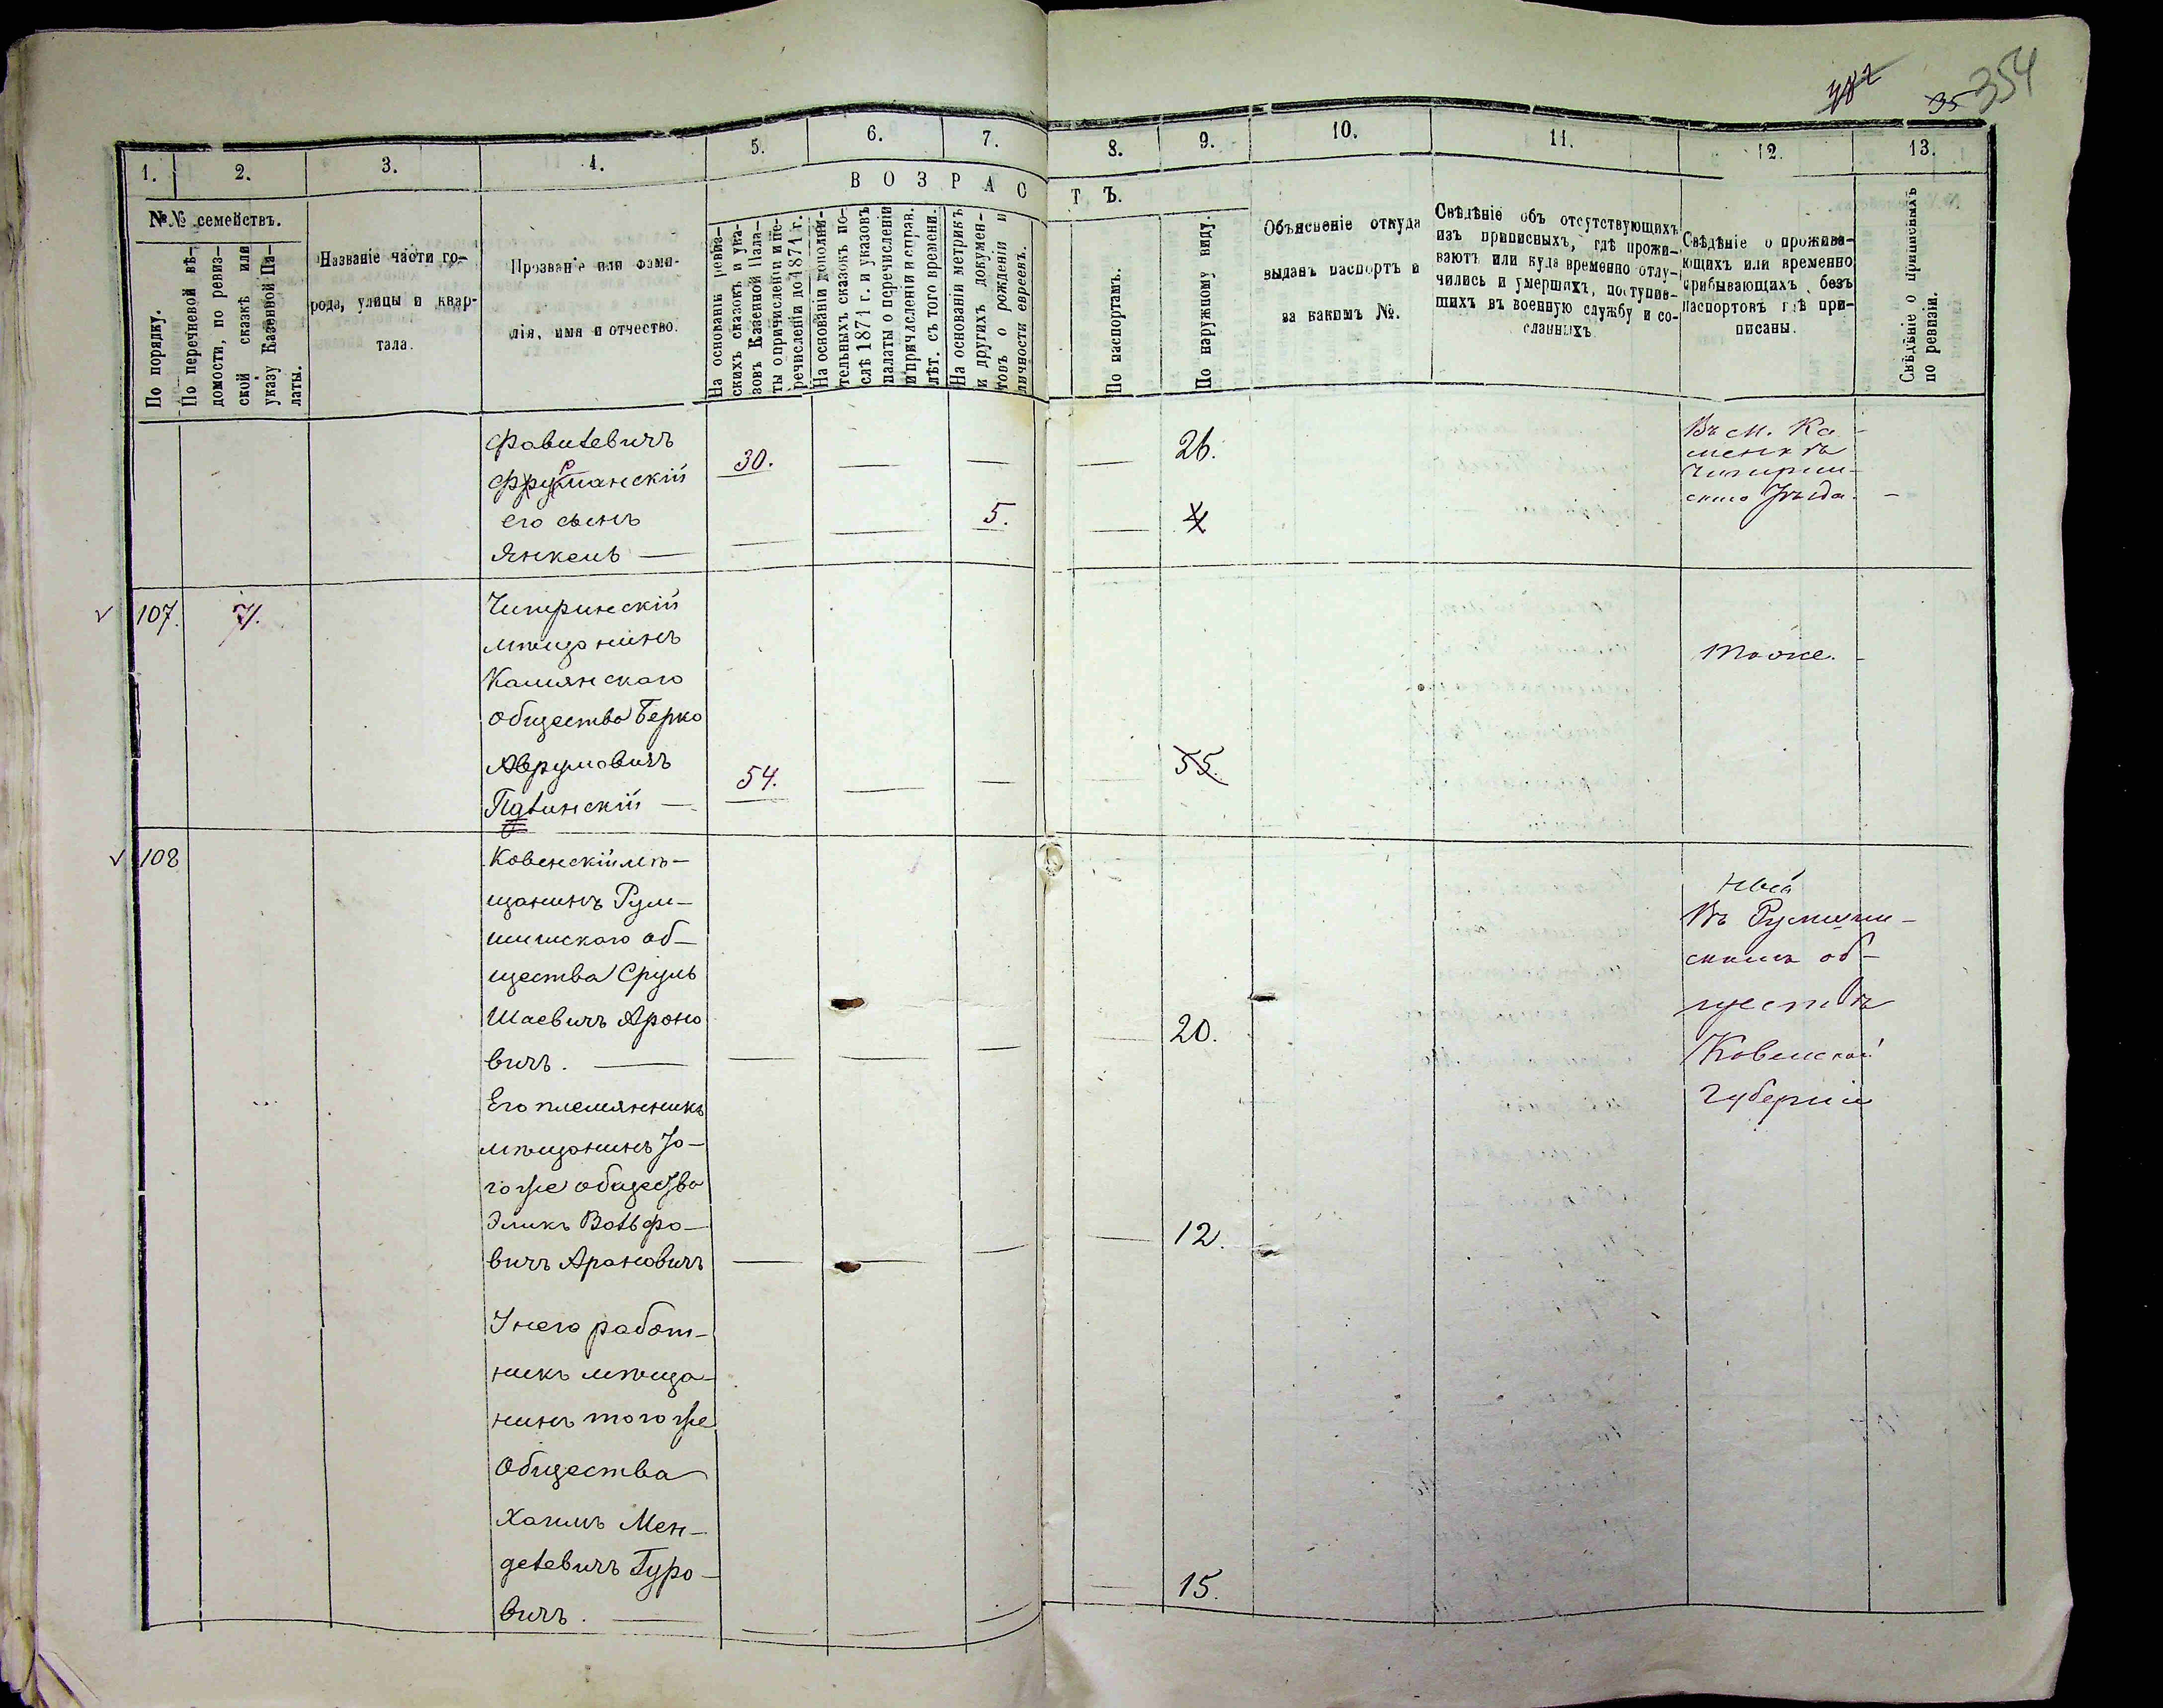 354
1.
2.
3.
4.
5.
6.
7.
8.
9.
10.
11.
12.
13.
ВОЗРАСТЪ.
№№ семействъ.
По порядку.
По перечневой вѣ-
домости, по ревиз-
ской сказкѣ или
указу Казенной Па-
латы.
Названіе части го-
рода, улицы и квар-
тала.
Прозваніе или фами-
лія, имя и отчество.
На основаніи ревиз-
скихъ сказокъ и ука-
зовъ Казенной Пала-
ты о причисленіи и пе-
речисленіи до 1871 г.
На основаніи дополни-
тельныхъ сказокъ по-
слѣ 1871 г. и указовъ
палаты о перечисленіи
и причисленіи и справ.
лѣт. съ того времени.
На основаніи метрикъ
и другихъ докумен-
товъ о рожденіи и
личности евреевъ.
По паспортамъ.
По наружному виду.
Объясненіе откуда
выданъ паспортъ и
за какимъ №.
Свѣдѣніе объ отсутствующихъ
изъ приписныхъ, гдѣ прожи-
ваютъ или куда временно отлу-
чились и умершихъ, поступив-
шихъ въ военную службу и со-
сланныхъ
Свѣдѣніе о прожива-
ющихъ или временно
прибывающихъ безъ
паспортовъ гдѣ при-
писаны.
Свѣдѣніе о приписныхъ
по ревизіи.
Фруманскій
30. — — — 26.
его сынъ
Янкель —
— — 5. — 4
Въ м. Ка-
менкѣ
Чигирин-
скаго уѣзда. —
107.
71.
Чигринскій
мѣщанинъ
Камянскаго
общества Берко
Аврумовичъ
54. — — — 55.
тоже. —
108
Ковенскій мѣ-
щанинъ Рум-
шишскаго об-
щества Сруль
Шаевичъ Ароно
вичъ. — — — — — 20.
Въ Румшиш-
скомъ об-
ществѣ
Ковенской
Губерніи
Его племянникъ
мѣщанинъ то-
гоже общества
Эликъ Вольфо-
вичъ Ароновичъ — — — — 12.
У него работ-
никъ мѣща-
нинъ тогоже
Общества
Хаимъ Мен-
делевичъ Гуро-
вичъ. — — — — — 15.